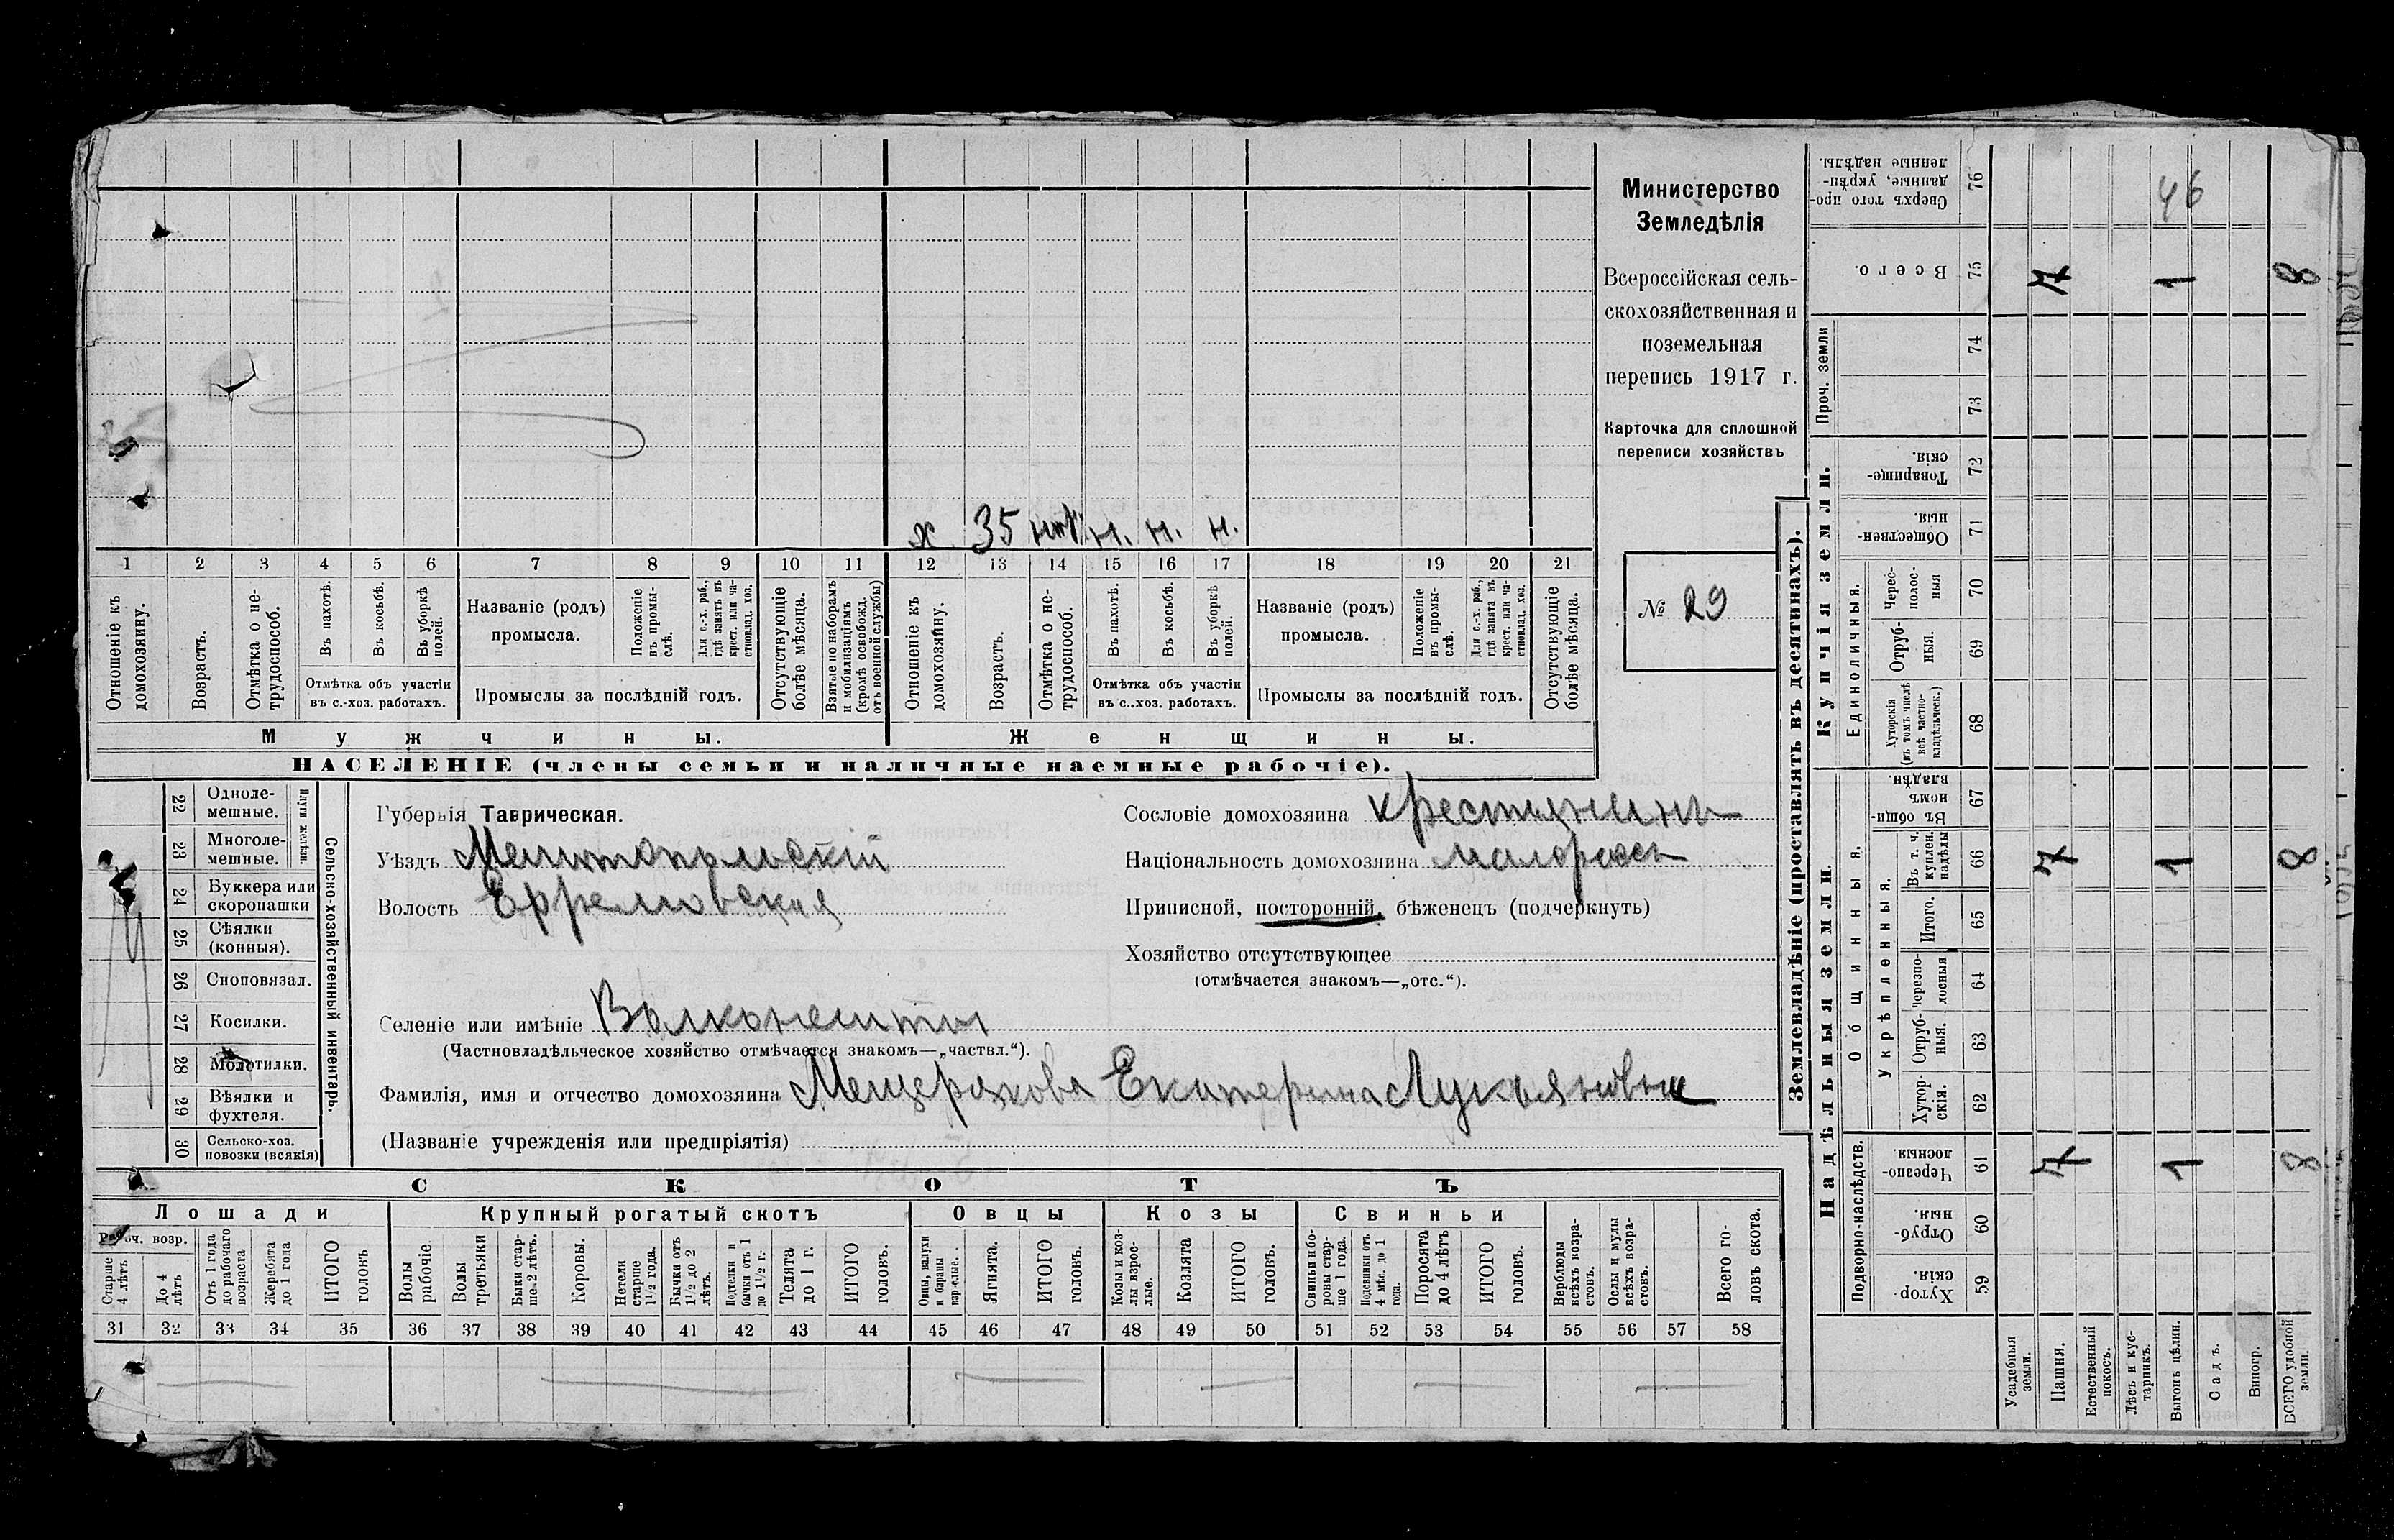 Министерство
Земледѣлія
Всероссійская сель-
скохозяйственная и
поземельная
перепись 1917 г.
Карточка для сплошной
переписи хозяйствъ
№ 29
х 35 н. н. н.
1 2 3 4 5 6 7 8 9 10 11 12 13 14 15 16 17 18 19 20 21
Отношеніе къ домохозяину.
Возрастъ.
Отмѣтка о не-трудоспособ.
Въ пахотѣ.
Въ косьбѣ.
Въ уборкѣ полей.
Отмѣтка объ участіи
въ с.-хоз. работахъ.
Названіе (родъ)
промысла.
Положеніе въ промы-слѣ.
Для с.-х. раб., гдѣ занятъ въ крест. или ча-стновлад. хоз.
Промыслы за послѣдній годъ.
Отсутствующіе болѣе мѣсяца.
Взятые по наборамъ и мобилизаціямъ (кромѣ освобожд. отъ военной службы)
Отношеніе къ домохозяину.
Возрастъ.
Отмѣтка о не-трудоспособ.
Въ пахотѣ.
Въ косьбѣ.
Въ уборкѣ полей.
Отмѣтка объ участіи
въ с..хоз. работахъ.
Названіе (родъ)
промысла.
Положеніе въ промы-слѣ.
Для с.-х. раб., гдѣ занята въ крест. или ча-стновлад. хоз.
Промыслы за послѣдній годъ.
Отсутствующіе болѣе мѣсяца.
Мужчины. Женщины.
НАСЕЛЕНІЕ (члены семьи и наличные наемные рабочіе).
Сельско-хозяйственный инвентарь.
Плуги желѣзн.
22 Одноле-мешные.
23 Многоле-мешные.
24 Буккера или скоропашки
25 Сѣялки (конныя).
26 Сноповязал.
27 Косилки.
28 Молотилки.
29 Вѣялки и фухтеля.
30 Сельско-хоз. повозки (всякія)
Губернія Таврическая.
Уѣздъ Мелитопольскій
Волость Ефремовская
Селеніе или имѣніе Волконешты
(Частновладѣльческое хозяйство отмѣчается знакомъ—„частвл.“).
Фамилія, имя и отчество домохозяина Мещерякова Екатерина Лукьяновна
(Названіе учрежденія или предпріятія)
Сословіе домохозяина крестьянинъ
Національность домохозяина малороссъ
Приписной, посторонній, бѣженецъ (подчеркнуть)
Хозяйство отсутствующее
(отмѣчается знакомъ—„отс.“).
СКОТЪ
Лошади Крупный рогатый скотъ Овцы Козы Свиньи
Рабоч. возр.
Старше 4 лѣтъ
До 4 лѣтъ
Отъ 1 года до рабочаго возраста
Жеребята до 1 года
ИТОГО головъ
Волы рабочіе.
Волы третьяки
Быки стар-ше 2 лѣтъ.
Коровы.
Нетели старше 1½ года.
Бычки отъ 1½ до 2 лѣтъ.
Подтелки и бычки отъ 1 до 1½ г.
Телята до 1 г.
ИТОГО головъ.
Овцы, валухи и бараны взрослые.
Ягнята.
ИТОГО головъ.
Козы и коз-лы взрос-лые.
Козлята
ИТОГО головъ.
Свиньи и бо-ровы стар-ше 1 года.
Подсвинки отъ 4 мѣс. до 1 года.
Поросята до 4 лѣтъ
ИТОГО головъ.
Верблюды всѣхъ возра-стовъ.
Ослы и мулы всѣхъ возра-стовъ.
Всего го-ловъ скота.
31 32 33 34 35 36 37 38 39 40 41 42 43 44 45 46 47 48 49 50 51 52 53 54 55 56 57 58
Землевладѣніе (проставлять въ десятинахъ).
Надѣльныя земли. Купчія земли. Проч. земли
Подворно-наслѣдств.
Общинныя.
Укрѣпленныя.
Единоличныя.
59 Хутор-скія.
60 Отруб-ныя.
61 Черезпо-лосныя. 7 1 8
62 Хутор-скія.
63 Отруб-ныя.
64 Черезпо-лосныя
65 Итого.
66 Въ т. ч. куплен. надѣлы 7 1 8
67 Въ общи-номъ владѣн.
68 Хуторскія (въ томъ числѣ всѣ частно-владѣльческ.)
69 Отруб-ныя.
70 Черес-полос-ныя
71 Обществен-ныя
72 Товарище-скія.
73
74
75 Всего. 7 1 8
76 Сверхъ того про-данные, укрѣп-ленные надѣлы. 46
Усадебныя земли.
Пашня.
Естественный покосъ.
Лѣсъ и кус-тарникъ.
Выгонъ цѣлин.
Садъ.
Виногр.
ВСЕГО удобной земли.